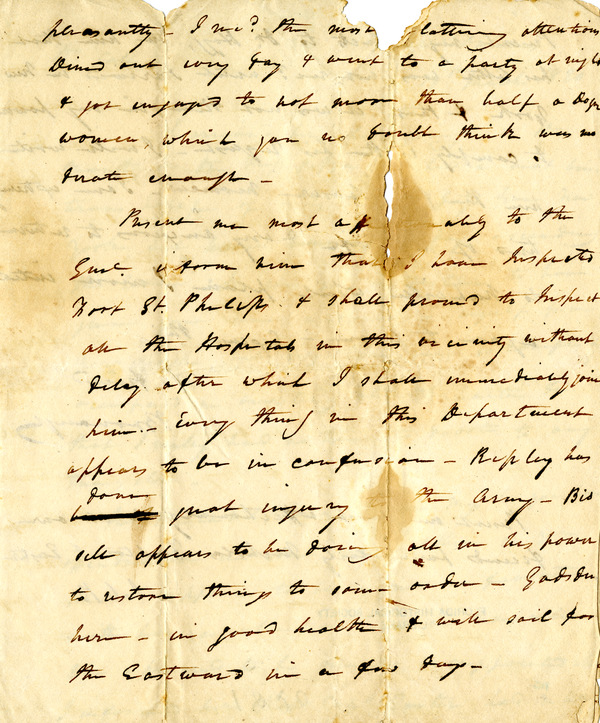 pleasantly - I rec'd the most flattering attentions
Dined out every day & went to a party at night
& got engaged to not more than half a Dozn
women, which you no doubt think was mo
derate enough -
Present me most aff nately to the
Genl. inform him that I have Inspected
Fort St. Philips & shall proceed to Inspect
all the Hospitals in this vicinity without
delay after which I shall immediately join
him. - Every thing in this Department
appears to be in confusion - Ripley has
done great injury to the Army - Bis
sell appears to be doing all in his power
to restore things to some order - Gadsden
here - in good health & will sail for
the Eastward in a few days -